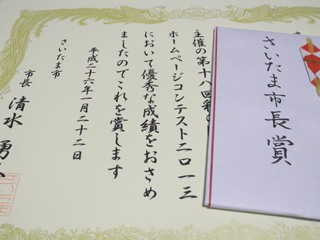 主催の第十八回
ホームページコンテスト二〇一三
において優秀な成績をおさめ
ましたのでこれを賞します
平成二十六年一月二十二日
さいたま市
市長 清水 勇
さいたま市長賞